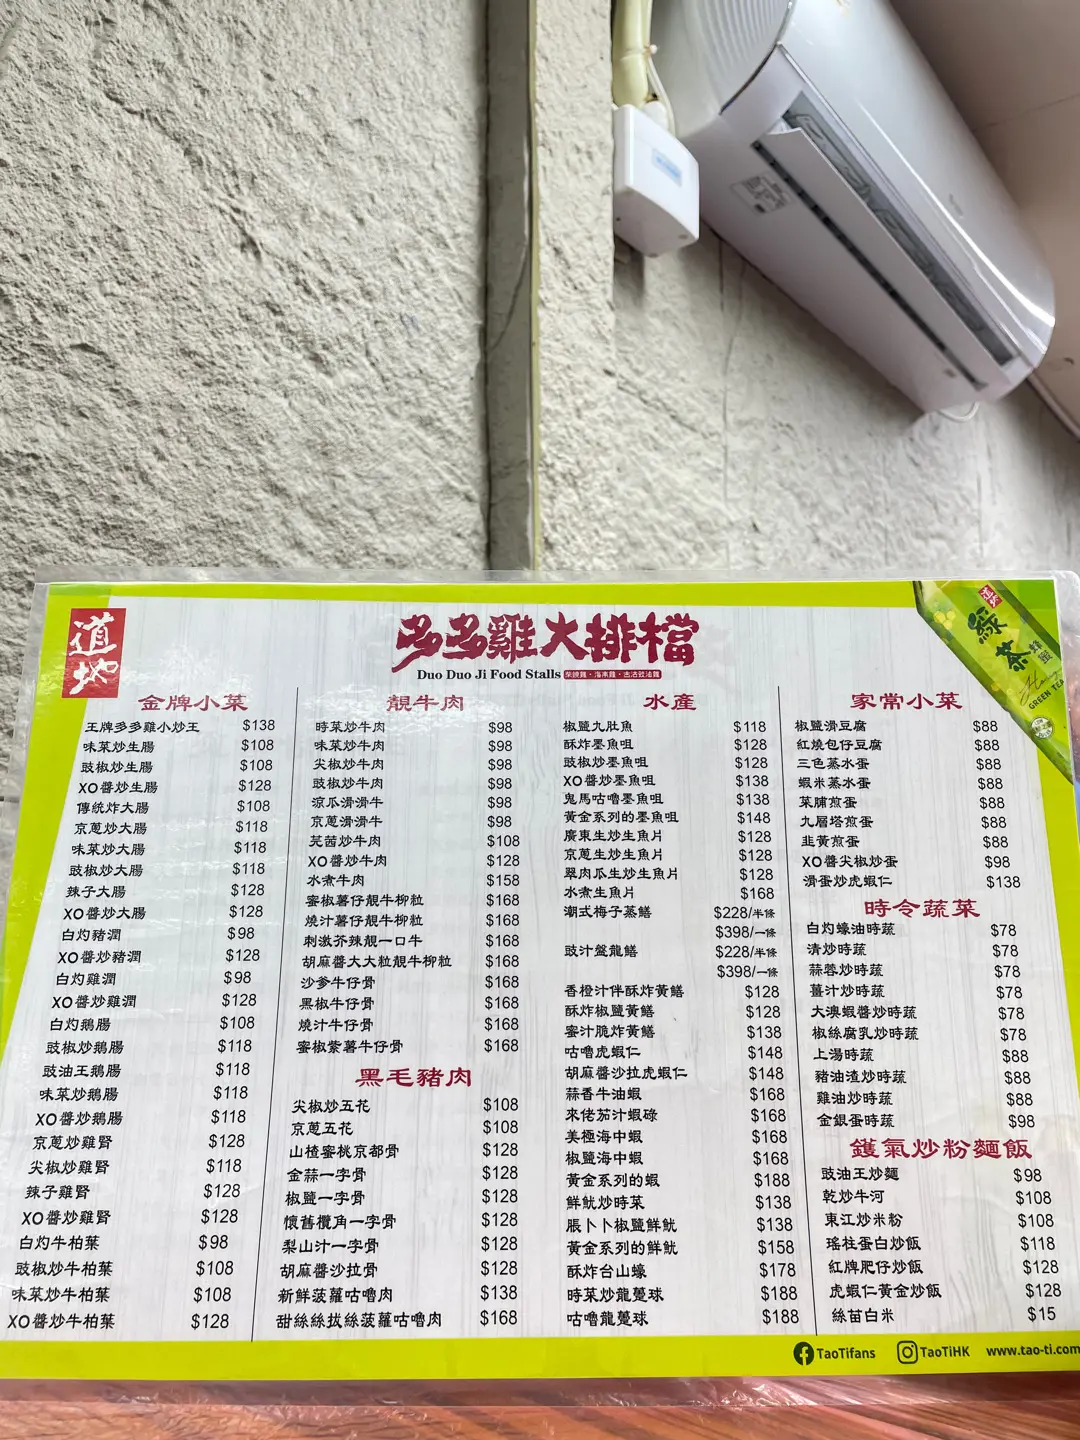 道地
多多雞大排檔
Duo Duo Ji Food Stalls
道地
綠茶
蜂蜜
Honey
GREEN TEA
金牌小菜
王牌多多雞小炒王 $138
味菜炒生腸 $108
豉椒炒生腸 $108
XO醬炒生腸 $128
傳統炸大腸 $108
京蔥炒大腸 $118
味菜炒大腸 $118
豉椒炒大腸 $118
辣子大腸 $128
XO醬炒大腸 $128
白灼豬潤 $98
XO醬炒豬潤 $128
白灼雞潤 $98
XO醬炒雞潤 $128
白灼鵝腸 $108
豉椒炒鵝腸 $118
豉油王鵝腸 $118
味菜炒鵝腸 $118
XO醬炒鵝腸 $118
京蔥炒雞腎 $128
尖椒炒雞腎 $118
辣子雞腎 $128
XO醬炒雞腎 $128
白灼牛柏葉 $98
豉椒炒牛柏葉 $108
味菜炒牛柏葉 $108
XO醬炒牛柏葉 $128
靚牛肉
時菜炒牛肉 $98
味菜炒牛肉 $98
尖椒炒牛肉 $98
豉椒炒牛肉 $98
涼瓜滑滑牛 $98
京蔥滑滑牛 $98
芫茜炒牛肉 $108
XO醬炒牛肉 $128
水煮牛肉 $158
蜜椒薯仔靚牛柳粒 $168
燒汁薯仔靚牛柳粒 $168
刺激芥辣靚一口牛 $168
胡麻醬大大粒靚牛柳粒 $168
沙爹牛仔骨 $168
黑椒牛仔骨 $168
燒汁牛仔骨 $168
蜜椒紫薯牛仔骨 $168
黑毛豬肉
尖椒炒五花 $108
京蔥五花 $108
山楂蜜桃京都骨 $128
金蒜一字骨 $128
椒鹽一字骨 $128
懷舊欖角一字骨 $128
梨山汁一字骨 $128
胡麻醬沙拉骨 $128
新鮮菠蘿咕嚕肉 $138
甜絲絲拔絲菠蘿咕嚕肉 $168
水產
椒鹽九肚魚 $118
酥炸墨魚咀 $128
豉椒炒墨魚咀 $128
XO醬炒墨魚咀 $138
鬼馬咕嚕墨魚咀 $138
黃金系列的墨魚咀 $148
廣東生炒生魚片 $128
京蔥生炒生魚片 $128
翠肉瓜生炒生魚片 $128
水煮生魚片 $168
潮式梅子蒸鱔 $228/半條
$398/一條
豉汁盤龍鱔 $228/半條
$398/一條
香橙汁伴酥炸黃鱔 $128
酥炸椒鹽黃鱔 $128
蜜汁脆炸黃鱔 $138
咕嚕虎蝦仁 $148
胡麻醬沙拉虎蝦仁 $148
蒜香牛油蝦 $168
來佬茄汁蝦碌 $168
美極海中蝦 $168
椒鹽海中蝦 $168
黃金系列的蝦 $188
鮮魷炒時菜 $138
脹卜卜椒鹽鮮魷 $138
黃金系列的鮮魷 $158
酥炸台山蠔 $178
時菜炒龍躉球 $188
咕嚕龍躉球 $188
家常小菜
椒鹽滑豆腐 $88
紅燒包仔豆腐 $88
三色蒸水蛋 $88
蝦米蒸水蛋 $88
菜脯煎蛋 $88
九層塔煎蛋 $88
韭黃煎蛋 $88
XO醬尖椒炒蛋 $98
滑蛋炒虎蝦仁 $138
時令蔬菜
白灼蠔油時蔬 $78
清炒時蔬 $78
蒜蓉炒時蔬 $78
薑汁炒時蔬 $78
大澳蝦醬炒時蔬 $78
椒絲腐乳炒時蔬 $78
上湯時蔬 $88
豬油渣炒時蔬 $88
雞油炒時蔬 $88
金銀蛋時蔬 $98
鑊氣炒粉麵飯
豉油王炒麵 $98
乾炒牛河 $108
東江炒米粉 $108
瑤柱蛋白炒飯 $118
紅牌肥仔炒飯 $128
虎蝦仁黃金炒飯 $128
絲苗白米 $15
TaoTifans TaoTiHK www.tao-ti.com